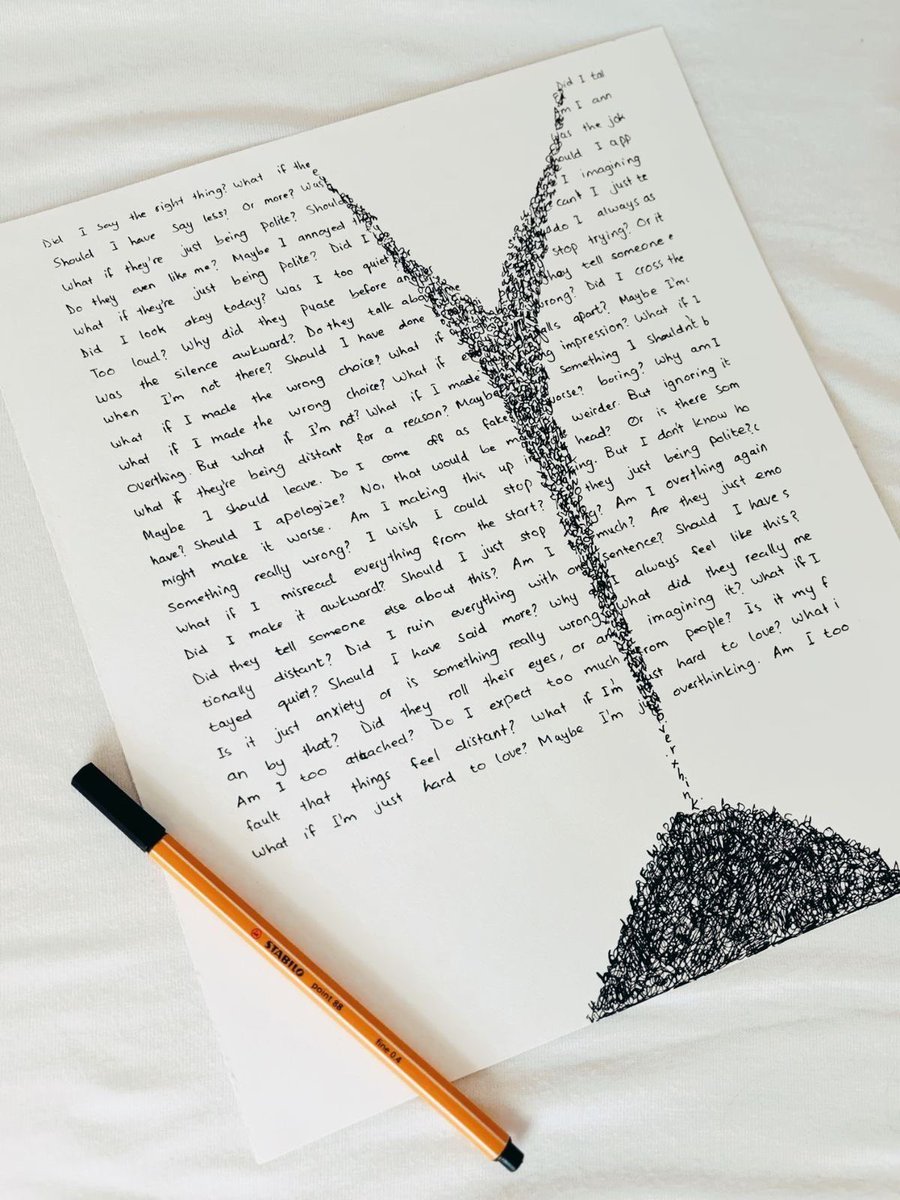 Did I say the right thing? What if the Did I tal
Should I have say less? Or more? Was Am I ann
What if they're just being polite? Should was the jok
Do they even like me? Maybe I annoyed th hould I app
What if they're just being polite? Did I I imagining
Did I look okay today? Was I too quiet cant I just te
Too loud? Why did they puase before an do I always as
Was the silence awkward? Do they talk about me stop trying? Or it
when I'm not there? Should I have done they tell someone e
What if I made the wrong choice? What if rong? Did I cross the
What if I made the wrong choice? What if alls apart? Maybe I'm
overthing. But what if I'm not? What if I made ng impression? What if I
What if they're being distant for a reason? Maybe something I shouldn't b
Maybe I should leave. Do I come off as fake orse? boring? Why am I
have? Should I apologize? No, that would be m weirder. But ignoring it
might make it worse. Am I making this up in head? Or is there som
Something really wrong? I wish I could stop king. But I don't know ho
What if I misread everything from the start? they just being polite?
Did I make it awkward? Should I just stop Am I overthing again
Did they tell someone else about this? Am I much? Are they just emo
tionally distant? Did I ruin everything with one sentence? Should I have s
tayed quiet? Should I have said more? Why do I always feel like this?
Is it just anxiety or is something really wrong? What did they really me
an by that? Did they roll their eyes, or am I imagining it? What if I
Am I too attached? Do I expect too much from people? Is it my f
fault that things feel distant? What if I'm just hard to love? What i
What if I'm just hard to love? Maybe I'm just overthinking. Am I too
overthink.
STABILO point 88 fine 0.4